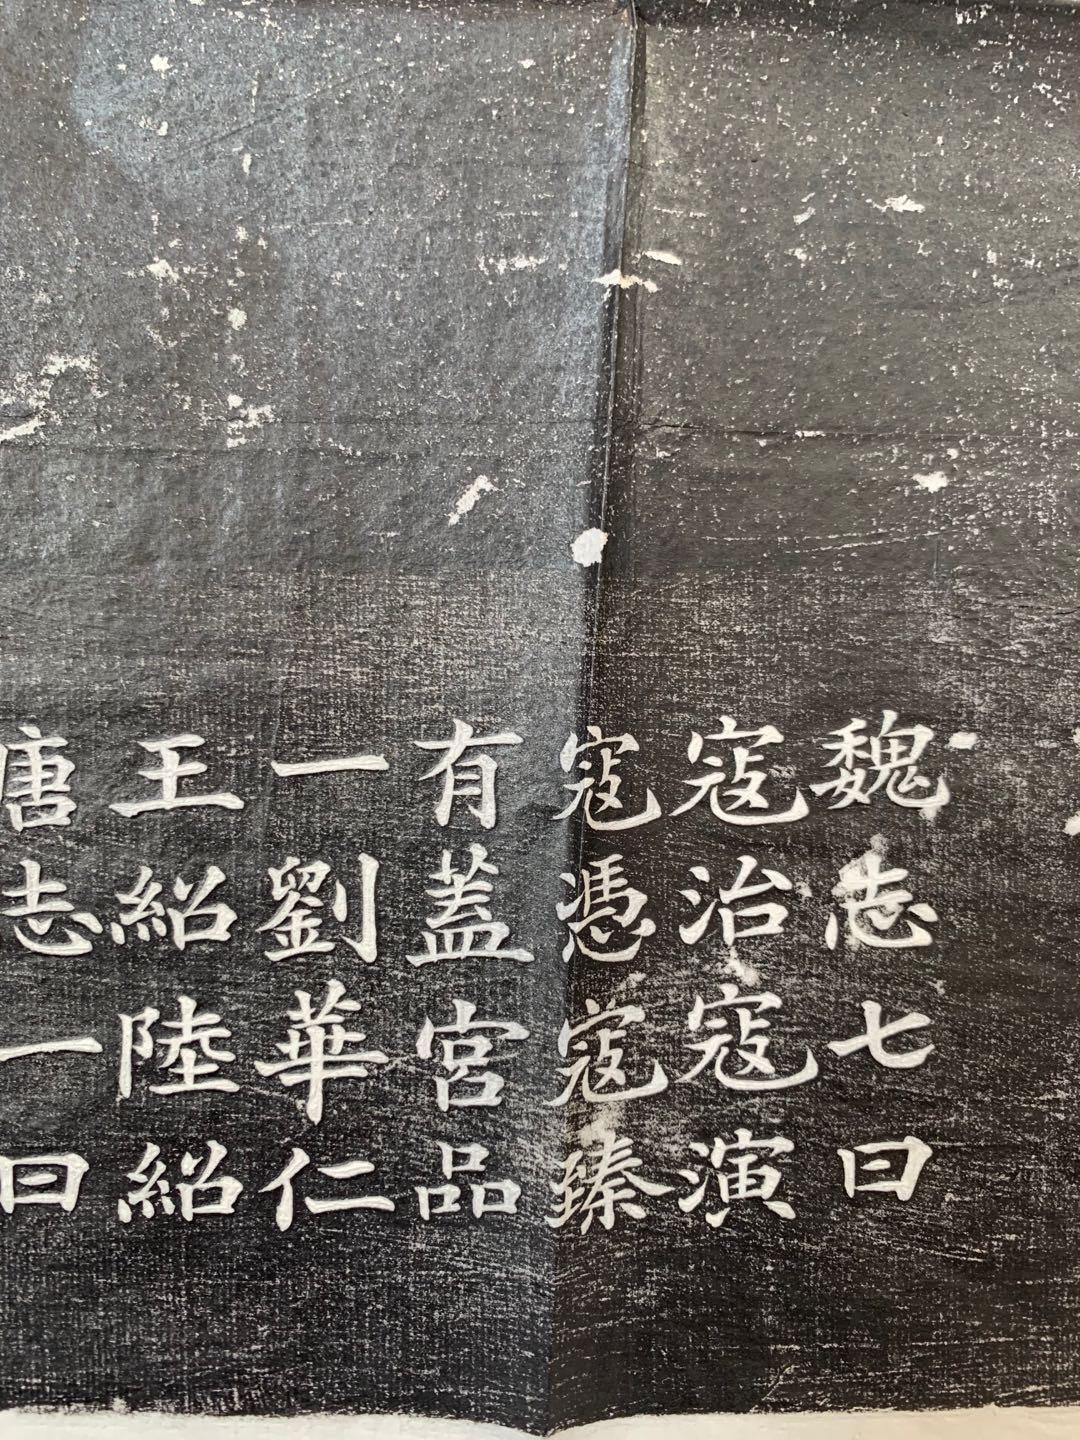 魏志七曰
寇治寇演
寇憑寇臻
有蓋宮品
一劉華仁
王紹陸紹
唐志一曰